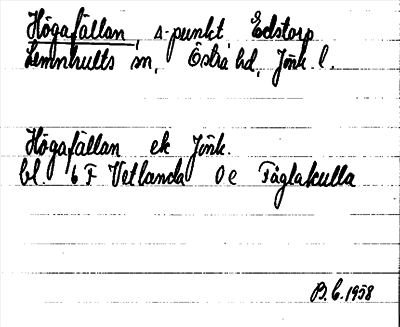 Högafällan, ▵-punkt Edstorp
Lemnhults sn, Östra hd, Jönk. l.
Högafällan ek Jönk.
bl. 6 F Vetlanda 0 e Fåglakulla
B. C. 1958